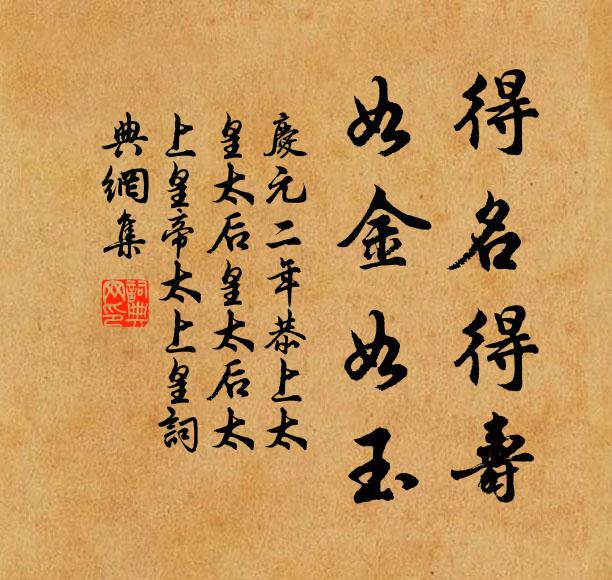 得名得壽
如金如玉
慶元二年恭上太
皇太后皇太后太
上皇帝太上皇詞
典網集
詞典網印